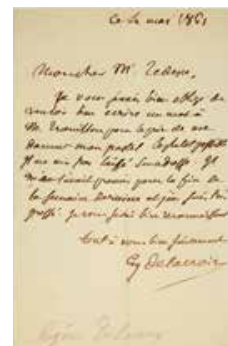 Ce 2 mai 1861
Mon cher Mr
Je vous serais bien obligé de
vouloir bien écrire un mot à
Mr pour le prier de me
donner mon pastel le plus
Il ne m'a pas laissé son adresse. Il
m'avait promis pour la fin de
la semaine dernière et j'en suis très
pressé. je vous serai bien reconnaissant
tout à vous bien sincèrement
Eug Delacroix
Eugène Delacroix